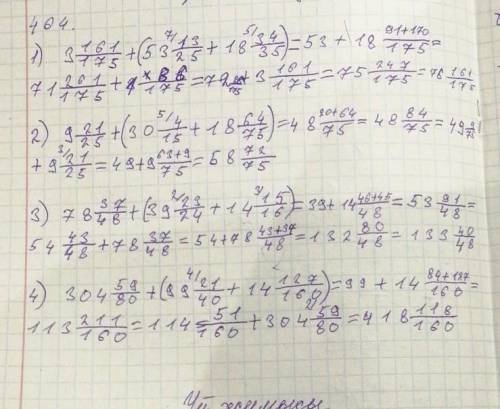 464.
1) 3 161/175 + (53 7/ 13/25 + 18 5/ 34/35) = 53 + 18 91+170/175 =
71 261/175 + 1 86/175 = 72 86/75 + 3 161/175 = 75 247/175 = 76 161/175
2) 9 21/25 + (30 5/ 4/15 + 18 64/75) = 48 20+64/75 = 48 84/75 = 49 9/75
+ 9 3/ 21/25 = 49 + 9 63+9/75 = 58 72/75
3) 78 37/48 + (39 2/ 23/24 + 14 3/ 15/16) = 39 + 14 46+45/48 = 53 91/48 =
54 43/48 + 78 37/48 = 54 + 78 43+37/48 = 132 80/48 = 133 40/48
4) 304 59/80 + (99 4/ 21/40 + 14 127/160) = 99 + 14 84+127/160 =
113 211/160 = 114 51/160 + 304 2/ 59/80 = 418 118/160